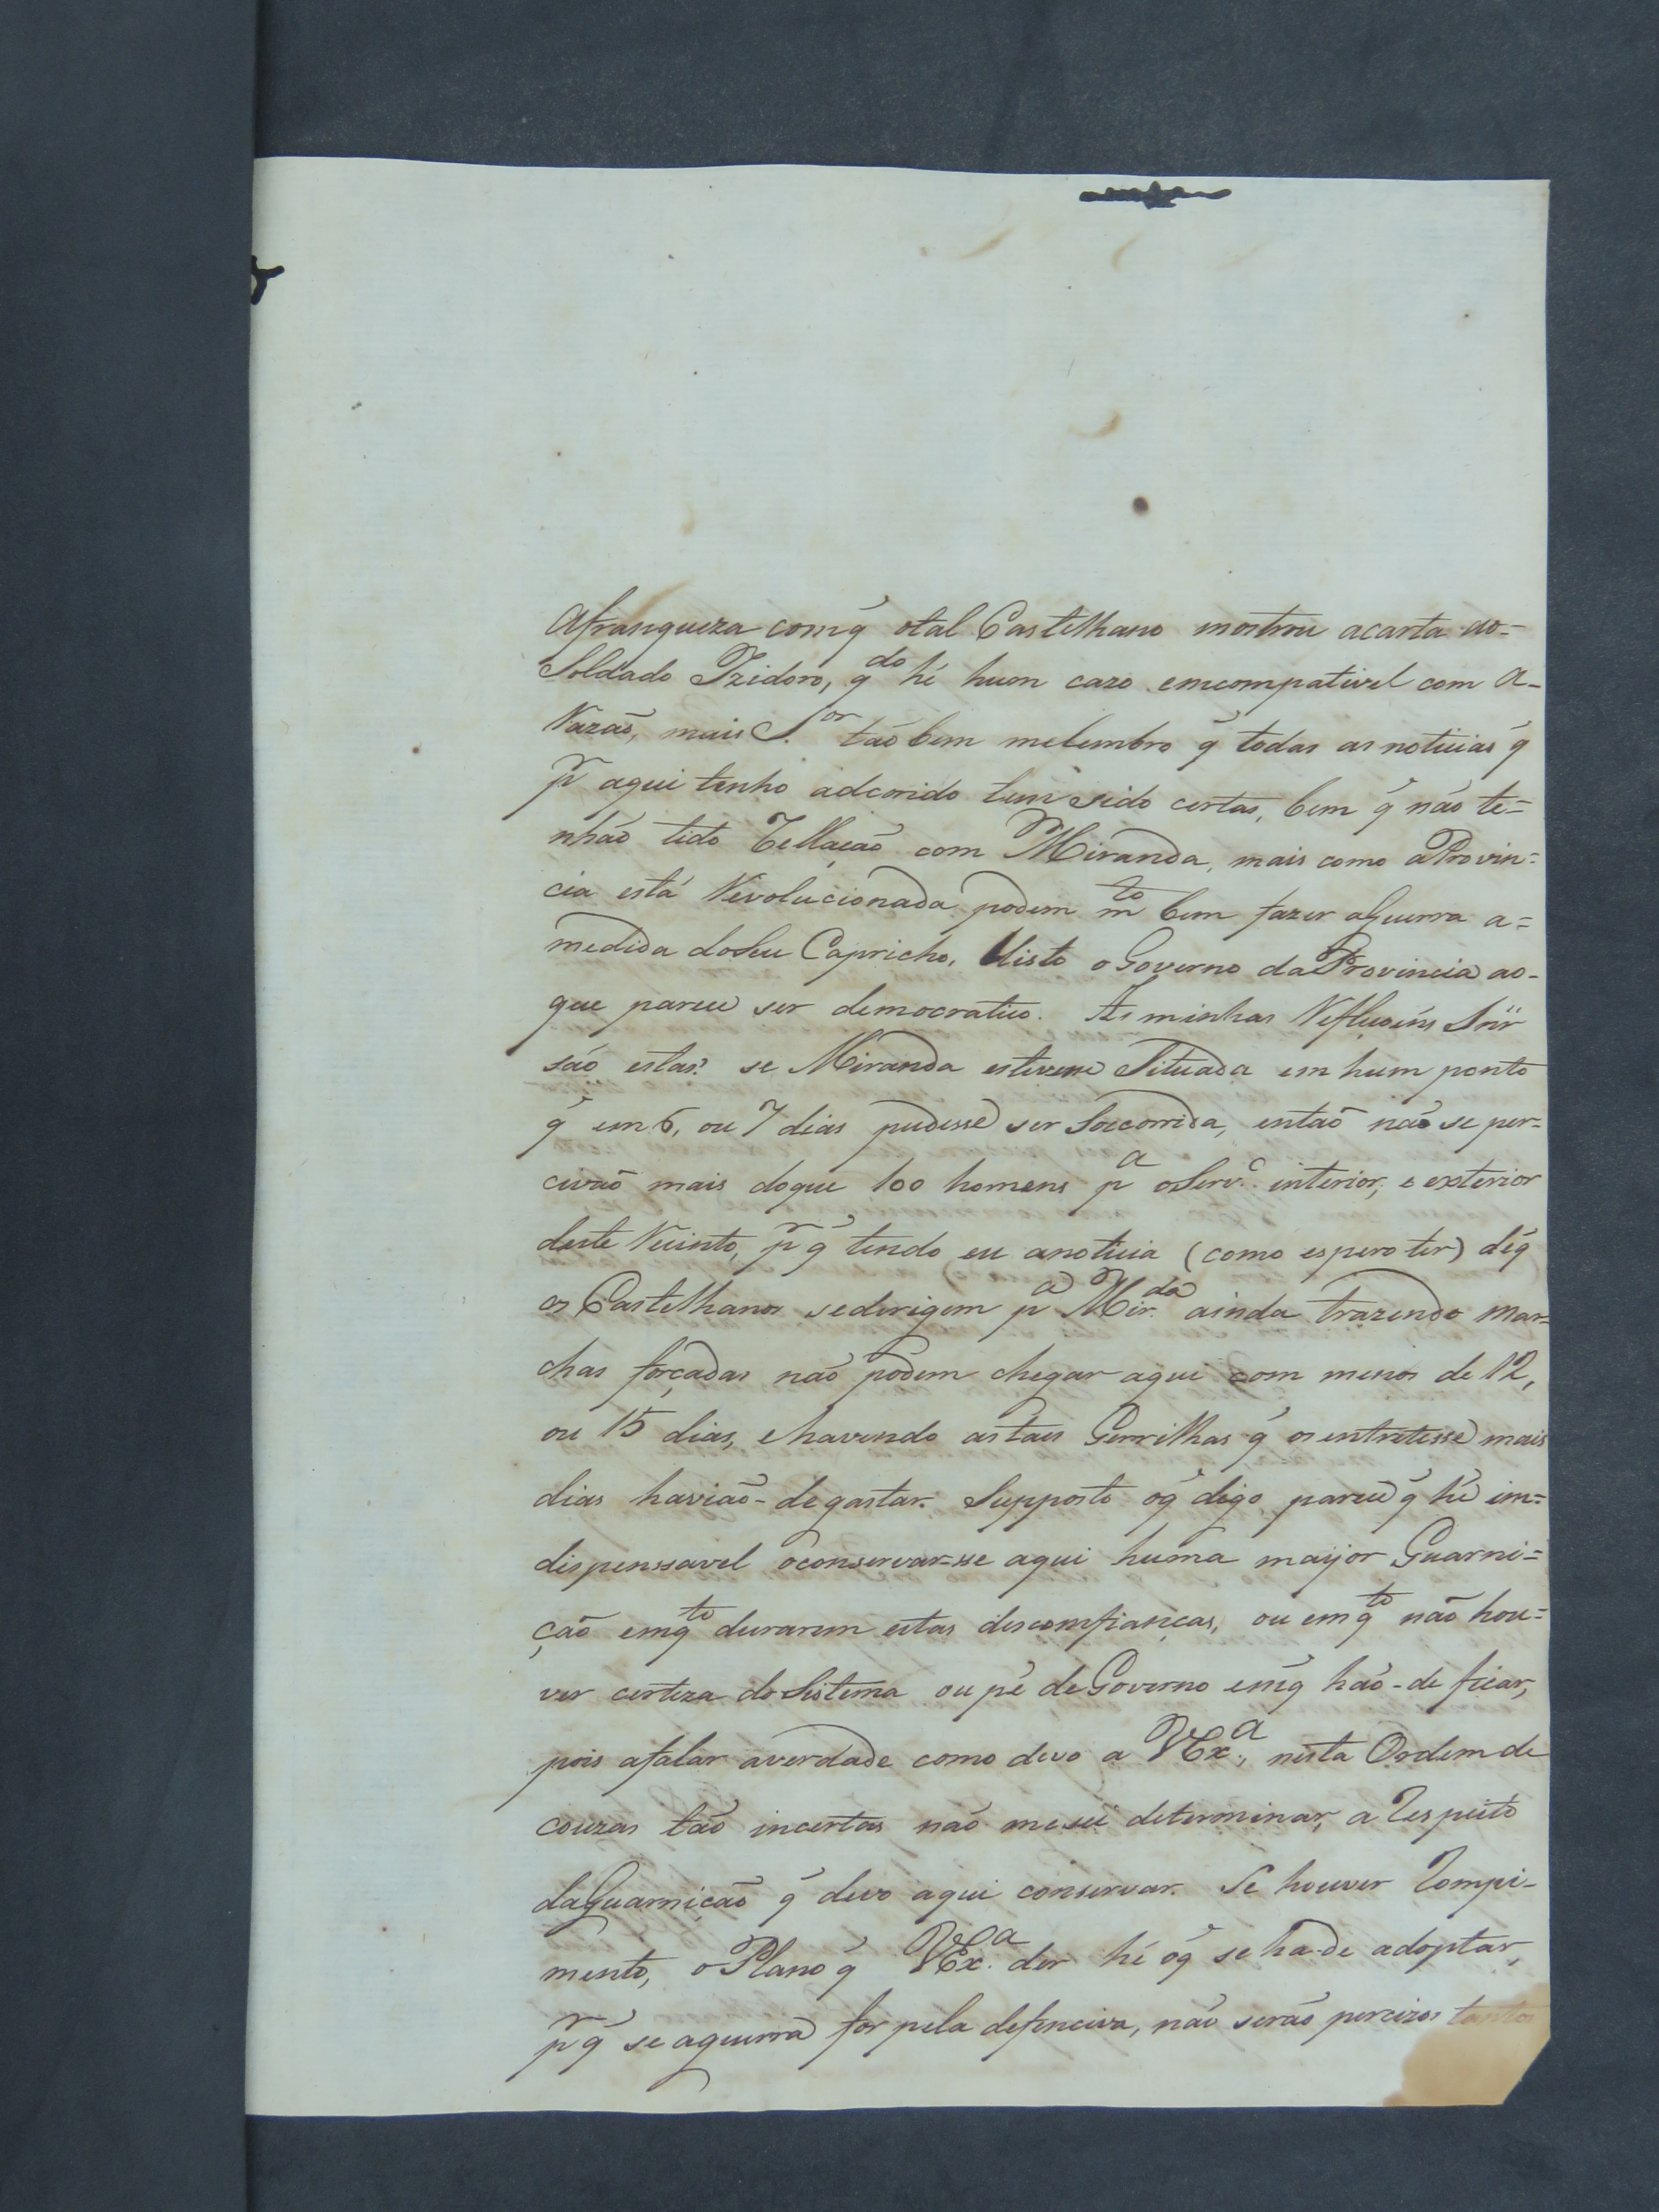 Afranqueza comq̃ otal Castelhano mostrou acarta ao=
Soldado Izidoro, q.do hé hum cazo emcompativel com a-
Razaõ, mais S.or taõ bem melembro q̃ todas as noticias q̃
p.r aqui tenho adcorido tem sido certas, bem q̃ naõ te=
nhaõ tido Rellaçaõ com Miranda, mais como aProvin=
cia está Revolucionada podem m.to bem fazer aGuerra a=
medida doSeu Capricho, Visto o Governo daProvincia ao-
que parece ser democratico. As minhas Reflexoéns Snr̃
saõ estas: se Miranda estivesse Situada em hum ponto
q̃ em 6, ou 7 dias pudesse ser Soccorrida, entaõ naõ se per=
cizaõ mais doque 100 homens p.a oServ.o interior, e exterior
deste Recinto, p.r q̃ tendo eu anoticia (como espero ter) déq̃
os Castelhanos sederigem p.a Mir.da ainda trazendo mar=
chas forçadas naõ podem chegar aqui com menos de 12,
ou 15 dias, ehavendo astaes Gerrilhas q̃ os entretesse mais
dias haviaõ-degastar. Supposto oq̃ digo parece q̃ hé im=
dispenssavel oconservar-se aqui huma maijor Guarni=
çaõ emq.to durarem estas discomfianças, ou emq.to naõ hou=
ver certeza doSistema ou pé deGoverno emq̃ haõ-de ficar,
pois afalar averdade como devo a VEx.a, nesta Ordem de
couzas taõ incertas naõ mesei determinar, a Respeito
daGuarniçaõ q̃ devo aqui conservar. Se houver Rompi-
mento, oPlano q̃ VEx.a der hé oq̃ se ha-de adoptar,
p.r q̃ se aguerra for pela defenciva, naõ seraõ percizos tantos